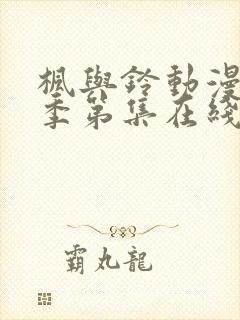 楓與鈴動漫
季第集在綫
霸丸龍